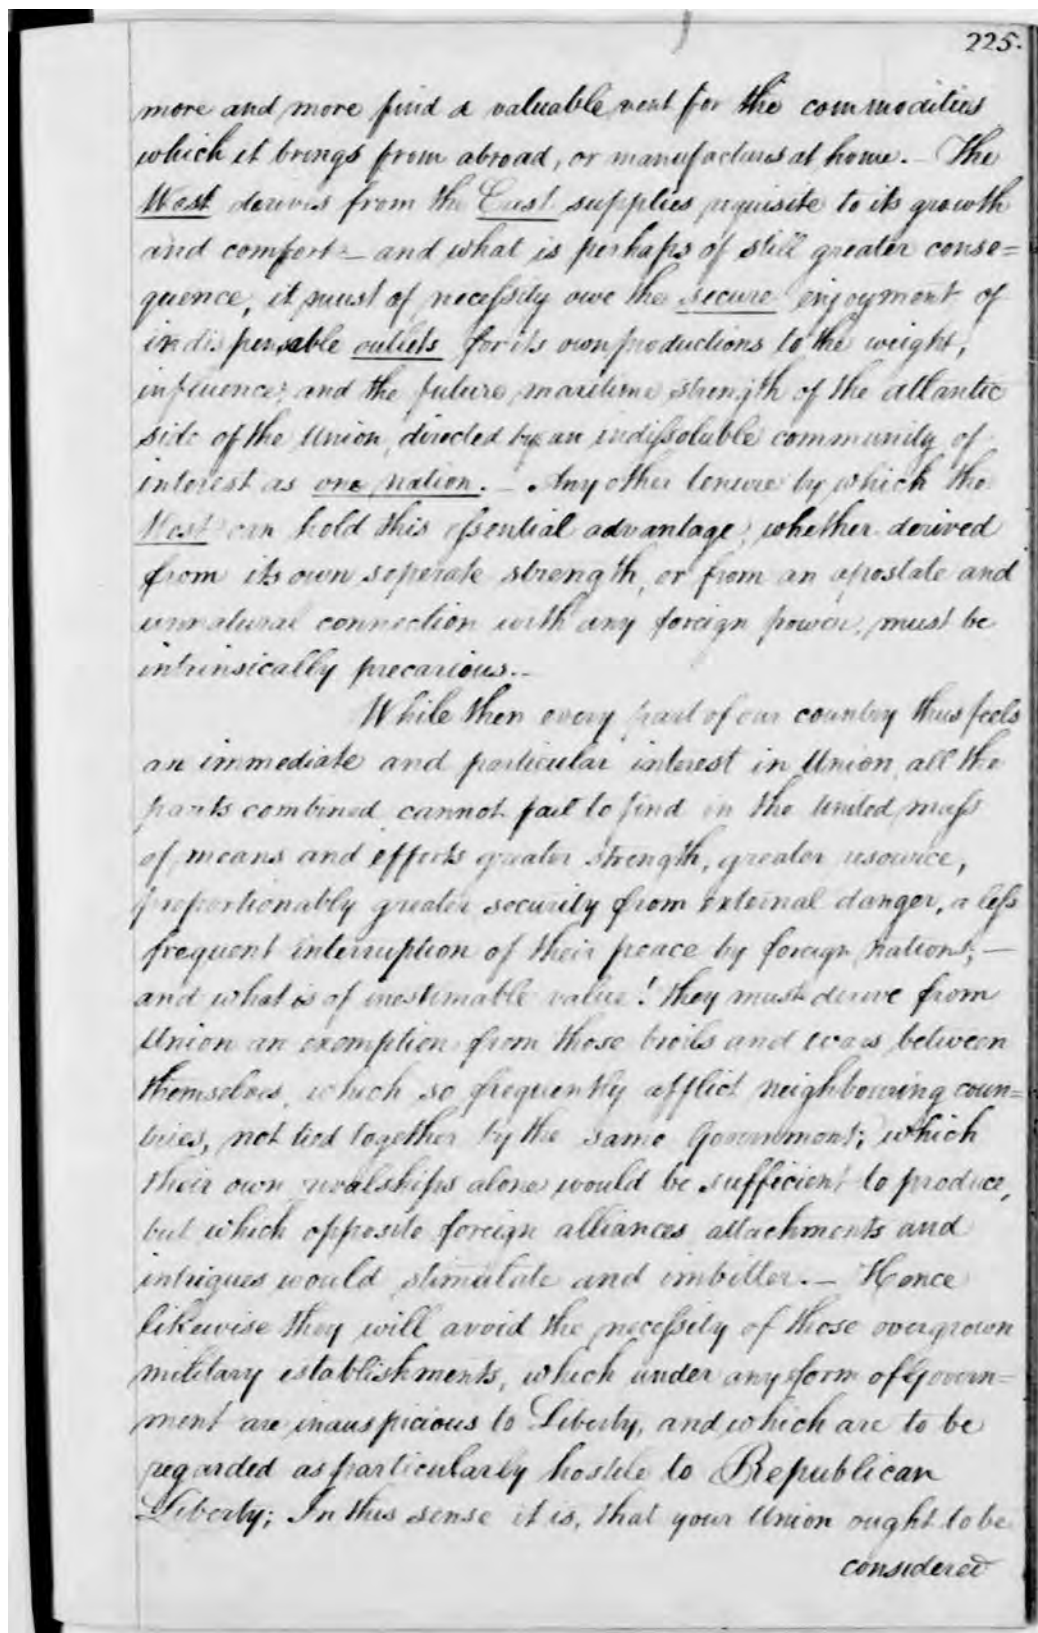 225.
more and more find a valuable vent for the commodities
which it brings from abroad, or manufactures at home. – The
West derives from the East supplies requisite to its growth
and comfort – and what is perhaps of still greater conse=
quence, it must of necessity owe the secure enjoyment of
indispensable outlets for its own productions to the weight,
influence, and the future maritime strength of the atlantic
side of the Union, directed by an indissoluble community of
interest as one nation. – Any other tenure by which the
West can hold this essential advantage, whether derived
from its own seperate strength, or from an apostate and
unnatural connection with any foreign power, must be
intrinsically precarious. –
While then every part of our country thus feels
an immediate and particular interest in Union, all the
parts combined cannot fail to find in the United mass
of means and efforts greater strength, greater resource,
proportionably greater security from external danger, a less
frequent interruption of their peace by foreign nations; –
and what is of inestimable value! they must derive from
Union an exemption from those broils and wars between
themselves, which so frequently afflict neighbouring coun=
tries, not tied together by the same Government; which
their own rivalships alone would be sufficient to produce,
but which opposite foreign alliances attachments and
intrigues would stimulate and imbitter. – Hence
likewise they will avoid the necessity of those overgrown
military establishments, which under any form of Govern=
ment are inauspicious to Liberty, and which are to be
regarded as particularly hostile to Republican
Liberty; In this sense it is, that your Union ought to be
considered